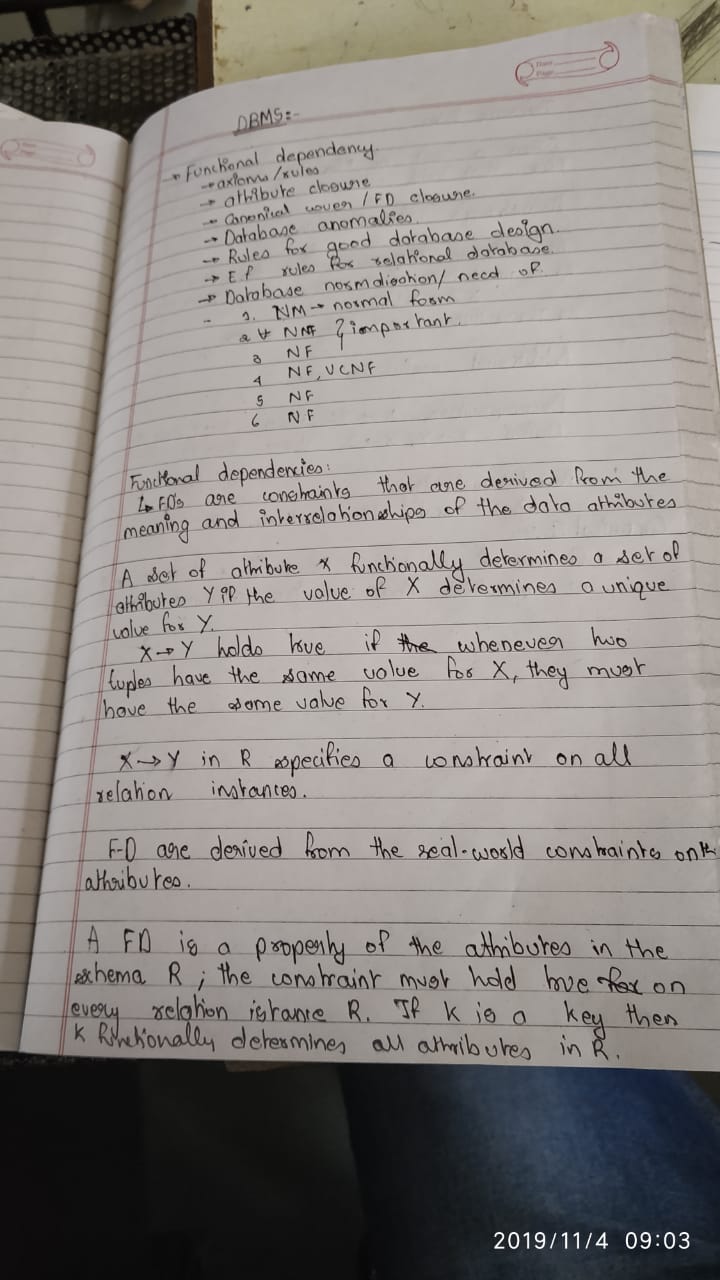 DBMS:-
→ Functional dependency.
→ axioms/rules
→ attribute closure
→ Canonical cover / FD closure.
→ Database anomalies.
→ Rules for good database design.
→ E.f rules for relational database.
→ Database normdisation/ need of.
1. NM → normal form
2 NNF } important.
3 NF
4 NF, VCNF
5 NF
6 NF
Functional dependencies:
↳ FD's are constraints that are derived from the
meaning and interrelationships of the data attributes
A set of attribute x functionally determines a set of
attributes Y iff the value of X determines a unique
value for Y.
X→Y holds true if the whenever two
tuples have the same value for X, they must
have the same value for Y.
X→Y in R specifies a constraint on all
relation instances.
F-D are derived from the real-world constraints on
attributes.
A FD is a property of the attributes in the
schema R ; the constraint must hold true for on
every relation istance R. If K is a key then
K functionally determines all attributes in R.
2019/11/4 09:03